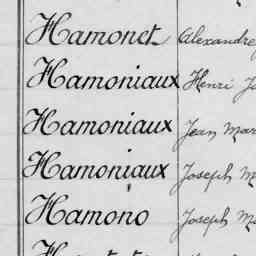 Hamonet Alexandre
Hamoniaux Henri
Hamoniaux Jean
Hamoniaux Joseph
Hamono Joseph